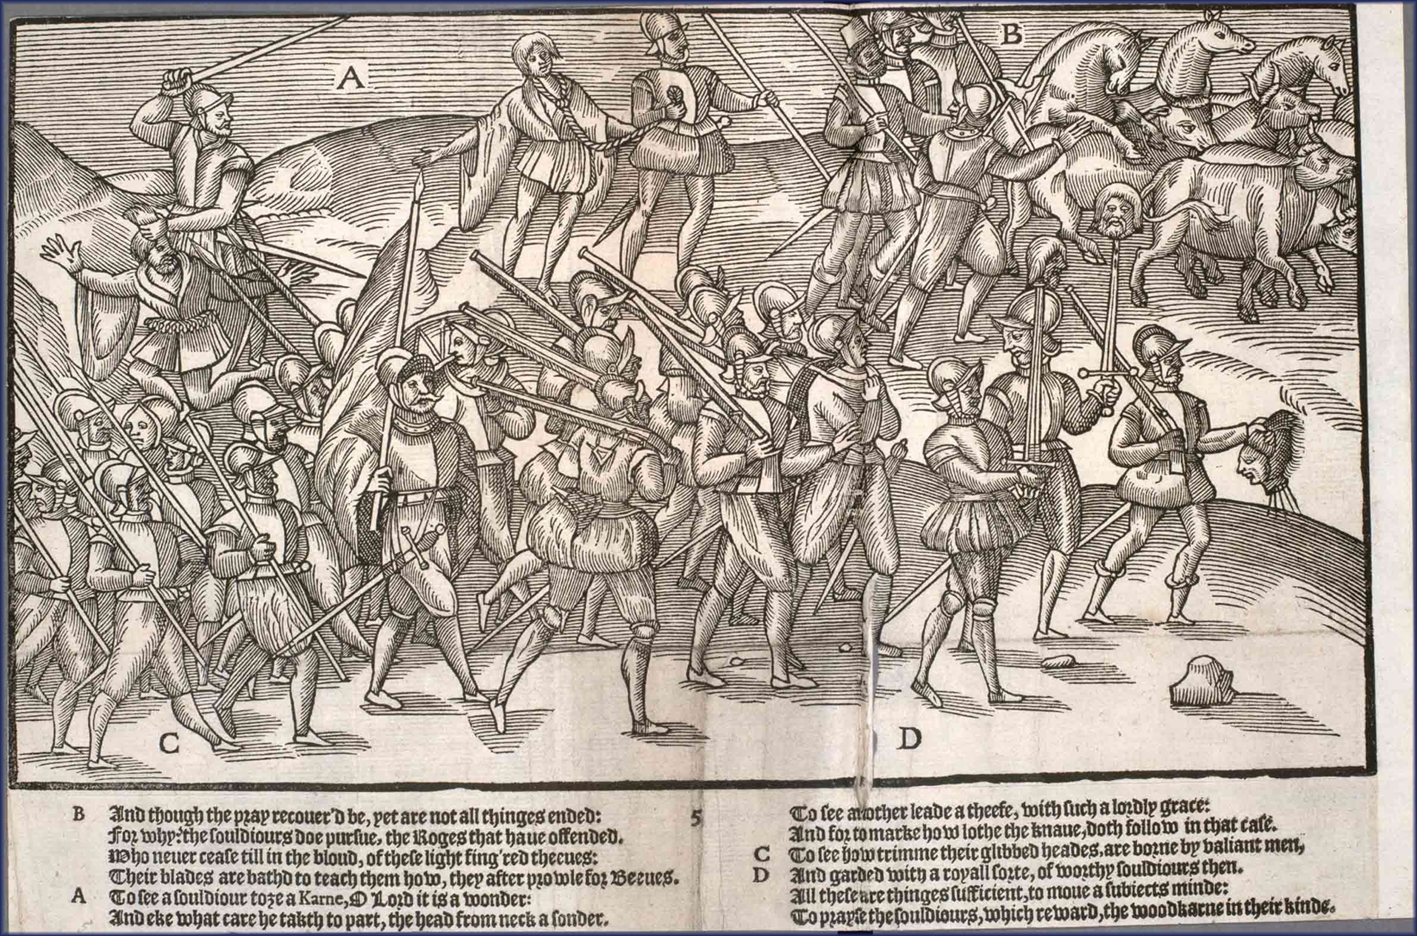 A
B
C
D
B And though the pray recouer'd be, yet are not all thinges ended:
For why? the souldiours doe pursue, the Roges that haue offended.
Who neuer cease till in the bloud, of these light fing'red theeues:
Their blades are bathd to teach them how, they after prowle for Beeues.
A To see a souldiour toze a Karne, O Lord it is a wonder:
And eke what care he takth to part, the head from neck a sonder.
5
To see another leade a theefe, with such a lordly grace:
And for to marke how lothe the knaue, doth follow in that case.
C To see how trimme their glibbed heades, are borne by valiant men,
D And garded with a royall sorte, of worthy souldiours then.
All these are thinges sufficient, to moue a subiects minde:
To prayse the souldiours, which reward, the woodkarne in their kinde.